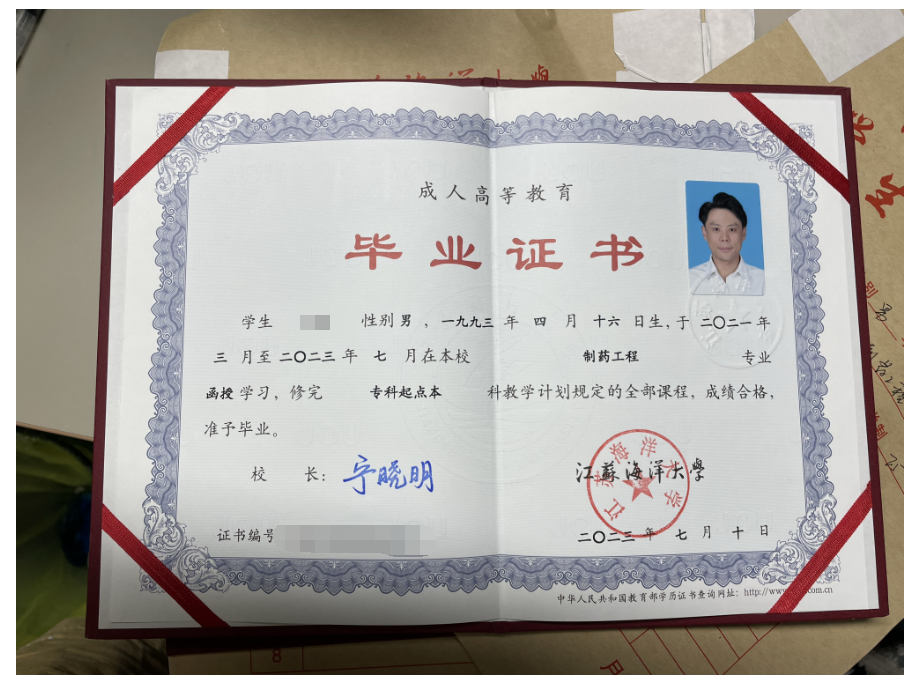 成人高等教育
毕业证书
学生 性别 男 ，一九九三 年 四 月 十六 日生，于 二〇二一 年
三 月至 二〇二三 年 七 月在本校 制药工程 专业
函授 学习，修完 专科起点本 科教学计划规定的全部课程，成绩合格，
准予毕业。
校 长： 宁晓明
江蘇海洋大學
江苏海洋大学
证书编号
二〇二三 年 七 月 十 日
中华人民共和国教育部学历证书查询网址：http://www. .com.cn